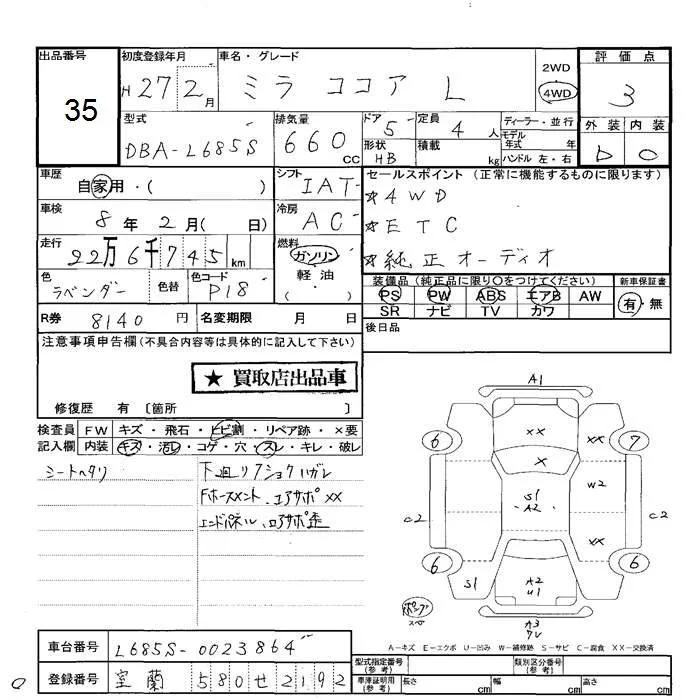 出品番号
35
初度登録年月
H 27 2月
車名・グレード
ミラ ココア L
2WD
4WD
評価点
3
外装 内装
D
型式
DBA-L685S
排気量
660 CC
ドア
5
形状
HB
定員
4 人
積載
kg
ディーラー・並行
モデル
年式 年
ハンドル 左・右
車歴
自家用・( )
シフト
IAT
セールスポイント (正常に機能するものに限ります)
☆4WD
☆ETC
☆純正オーディオ
車検
8年 2月( 日)
冷房
AC
走行
22万6千745 km
燃料
ガソリン・
軽油
( )
色
ラベンダー
色替
色コード
P18
装備品 (純正品に限り○をつけてください)
PS PW ABS エアB AW
SR ナビ TV カワ
新車保証書
有・無
R券 8140円
名変期限 月 日
後日品
注意事項申告欄(不具合内容等は具体的に記入して下さい)
★ 買取店出品車
修復歴 有 〔箇所 〕
検査員
記入欄
FW キズ・飛石・ヒビ割・リペア跡・×要
内装 キズ・汚レ・コゲ・穴・スレ・キレ・破レ
シートヘタリ
下廻りフショクハガレ
Fホースメント、コアサポ××
エンドパネル、ロアサポ歪
A1
6
××
××
7
×
W2
S1
A2
C2
C2
××
6
6
S1
A2
U1
A3
A-キズ E-エクボ U-凹み W-補修跡 S-サビ C-腐食 XX-交換済
車台番号
L685S-0023864
登録番号
室蘭 580 せ 2192
型式指定番号
(参考)
類別区分番号
(参考)
車庫証明用
(参考)
長さ cm 幅 cm 高さ cm